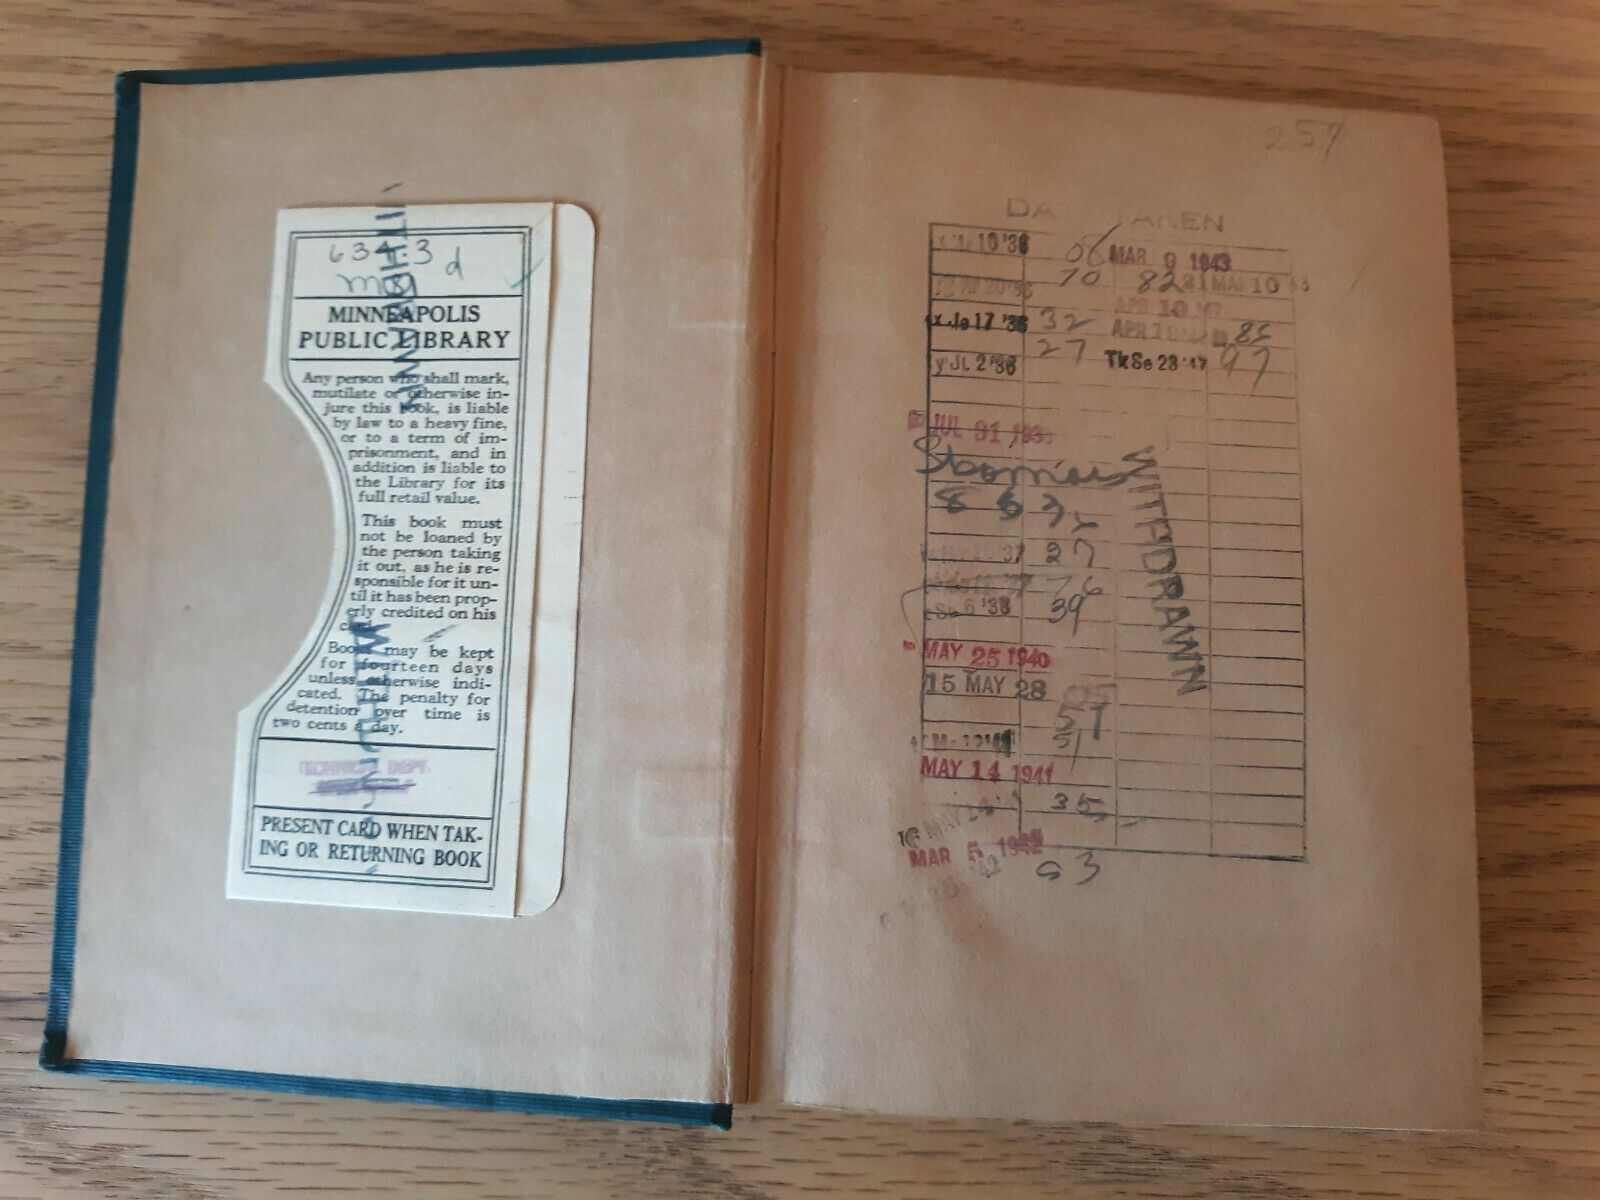 634.3
d
MINNEAPOLIS
PUBLIC LIBRARY
Any person who shall mark,
mutilate or otherwise in-
jure this book, is liable
by law to a heavy fine,
or to a term of im-
prisonment, and in
addition is liable to
the Library for its
full retail value.
This book must
not be loaned by
the person taking
it out, as he is re-
sponsible for it un-
til it has been prop-
erly credited on his
card.
Books may be kept
for fourteen days
unless otherwise indi-
cated. The penalty for
detention over time is
two cents a day.
TECHNICAL DEPT.
PRESENT CARD WHEN TAK-
ING OR RETURNING BOOK
WITHDRAWN
257
DA AKEN
10 '36 06 MAR 9 1943
70 82 MAR 10
APR 10 '47
Je 17 '36 32 APR 85
27 Tk Se 23 '47 97
y Jl 2 '36
JUL 31 193
8
37 27
76
Se 6 '38 39
WITHDRAWN
MAY 25 1940
15 MAY 28
57
51
MAY 14 1941
35
16 MAY 14
MAR 5 1942
'42
63